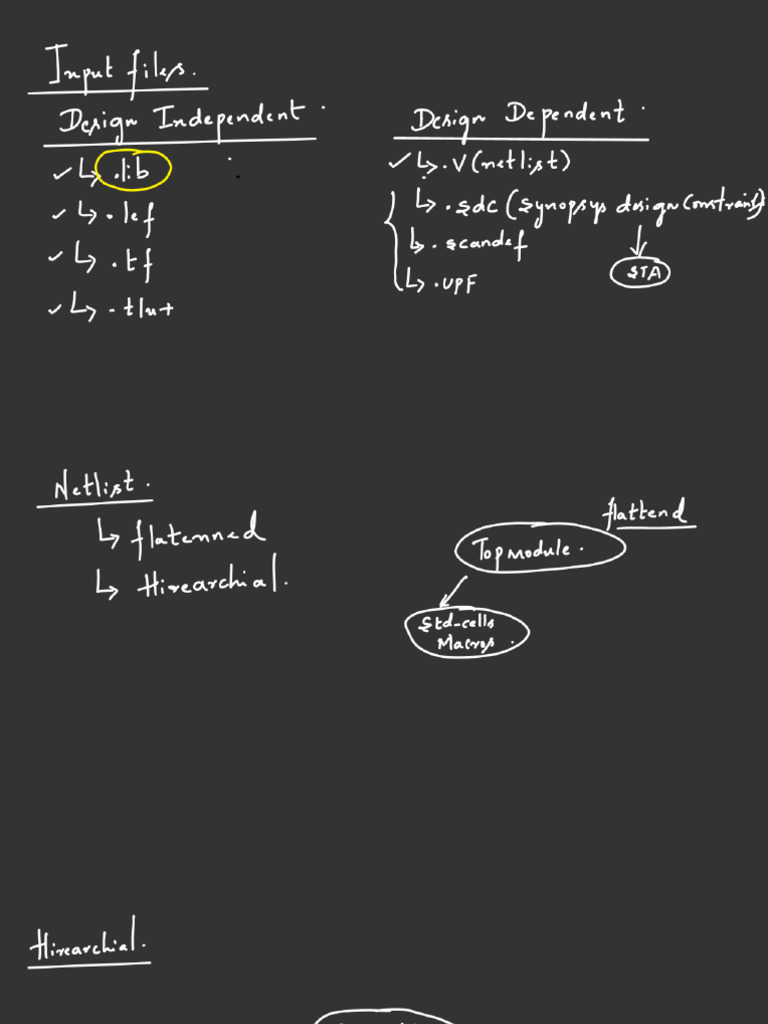 Input files.
Design Independent.
↳ .lib
↳ .lef
↳ .tf
↳ .tlu+
Design Dependent.
↳ .V (netlist)
↳ .sdc (Synopsys design Constraints)
↳ .scandef
↳ .UPF
STA
Netlist.
↳ flatenned
↳ Hirearchial.
flattend
Topmodule.
Std-cells
Macros.
Hirearchial.